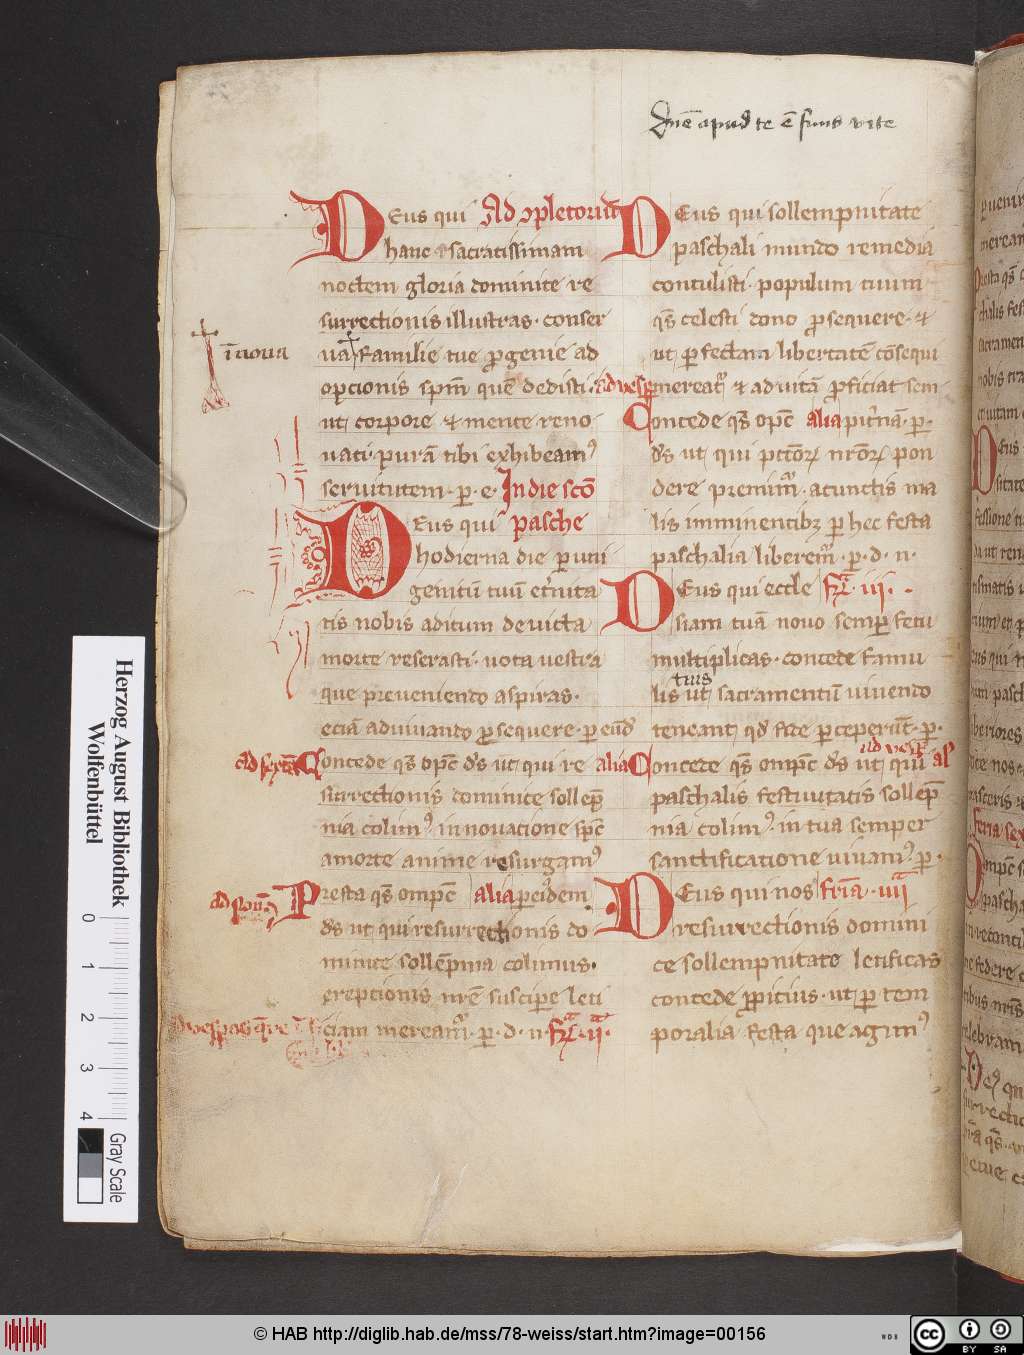 Qm̄ē apud te ē fons vite
Deus qui Ad ɔpletoriū
hanc sacratissimam
noctem gloria dominice re
surrectionis illustras · conser
ua familie tue ꝓgenie ad
īnoua
opcionis spm̄ quē dedisti ·
ut corpore & mente reno
uati · purā tibi exhibeamꝰ
seruitutem · ꝑ · e · In die scō
Deus qui pasche
hodierna die ꝑ uni
genitū tuū et̄nita
tis nobis aditum deuicta
morte reserasti · uota uestra
que preueniendo aspiras ·
eciā adiuuando ꝓsequere · ꝑ eūd
ad sextā Concede qs̄ opc̄ ds̄ ut qui re alia
surrectionis dominice sollēp
nia colimꝰ innouatione spc̄
a morte anime resurgamꝰ
ad nonā Presta qs̄ ompc̄ alia ꝑ eidem
ds̄ ut qui resurrectionis do
minice sollēpnia colimus ·
ereptionis nr̄e suscipe leti
ciam meream᷑ · ꝑ · d · n · fr̄ · ii ·
Deus qui sollempnitate
paschali mundo remedia
contulisti · populum tuum
qs̄ celesti dono ꝓsequere · &
ut ꝑfectam libertatē cōsequi
ad vesꝑ mereat᷑ & ad uitā ꝓficiat sem
Concede qs̄ opc̄ alia pit̄nā · ꝑ ·
ds̄ ut qui pcc̄oꝝ nr̄oꝝ pon
dere premim᷑ · a cunctis ma
lis imminentibꝫ ꝑ hec festa
paschalia liberem᷑ · ꝑ · d · n ·
Deus qui eccle fr̄ · iii ·
siam tuā nouo semꝑ fetu
multiplicas · concede famu
tuis
lis ut sacramentū uiuendo
teneant qd̄ fide ꝑceperūt · ꝑ ·
ad vesꝑ
Concede qs̄ ompc̄ ds̄ ut qui al
paschalis festiuitatis sollēp
nia colimꝰ · in tua semper
sanctificatione uiuamꝰ · ꝑ ·
Deus qui nos fr̄ia · iiii
resurrectionis domini
ce sollempnitate letificas
concede ꝓpicius · ut ꝑ tem
poralia festa que agimꝰ
Herzog August Bibliothek
Wolfenbüttel
0 1 2 3 4
Gray Scale
© HAB http://diglib.hab.de/mss/78-weiss/start.htm?image=00156
WDB
cc BY SA